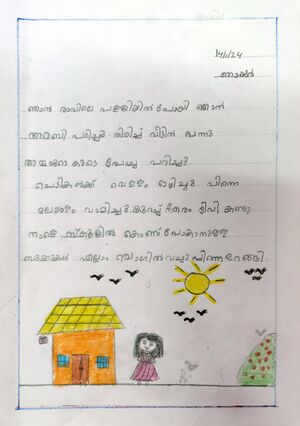 14/1/24
ഞായർ
ഞാൻ രാവിലെ പള്ളിയിൽ പോയി ഞാൻ
അറബി പഠിച്ചു തിരിച്ച് വീട്ടിൽ വന്നു
അമ്മയുടെ കൂടെ പേരക്ക പറിച്ചു.
ചെടികൾക്ക് വെള്ളം ഒഴിച്ചു പിന്നെ
മലയാളം വായിച്ചു. കുറച്ച് നേരം ടിവി കണ്ടു
നാളെ സ്കൂളിൽ കൊണ്ടുപോകാനുള്ള
ബുക്കുകൾ എല്ലാം ബാഗിൽ വച്ചു പിന്നെ ഉറങ്ങി.